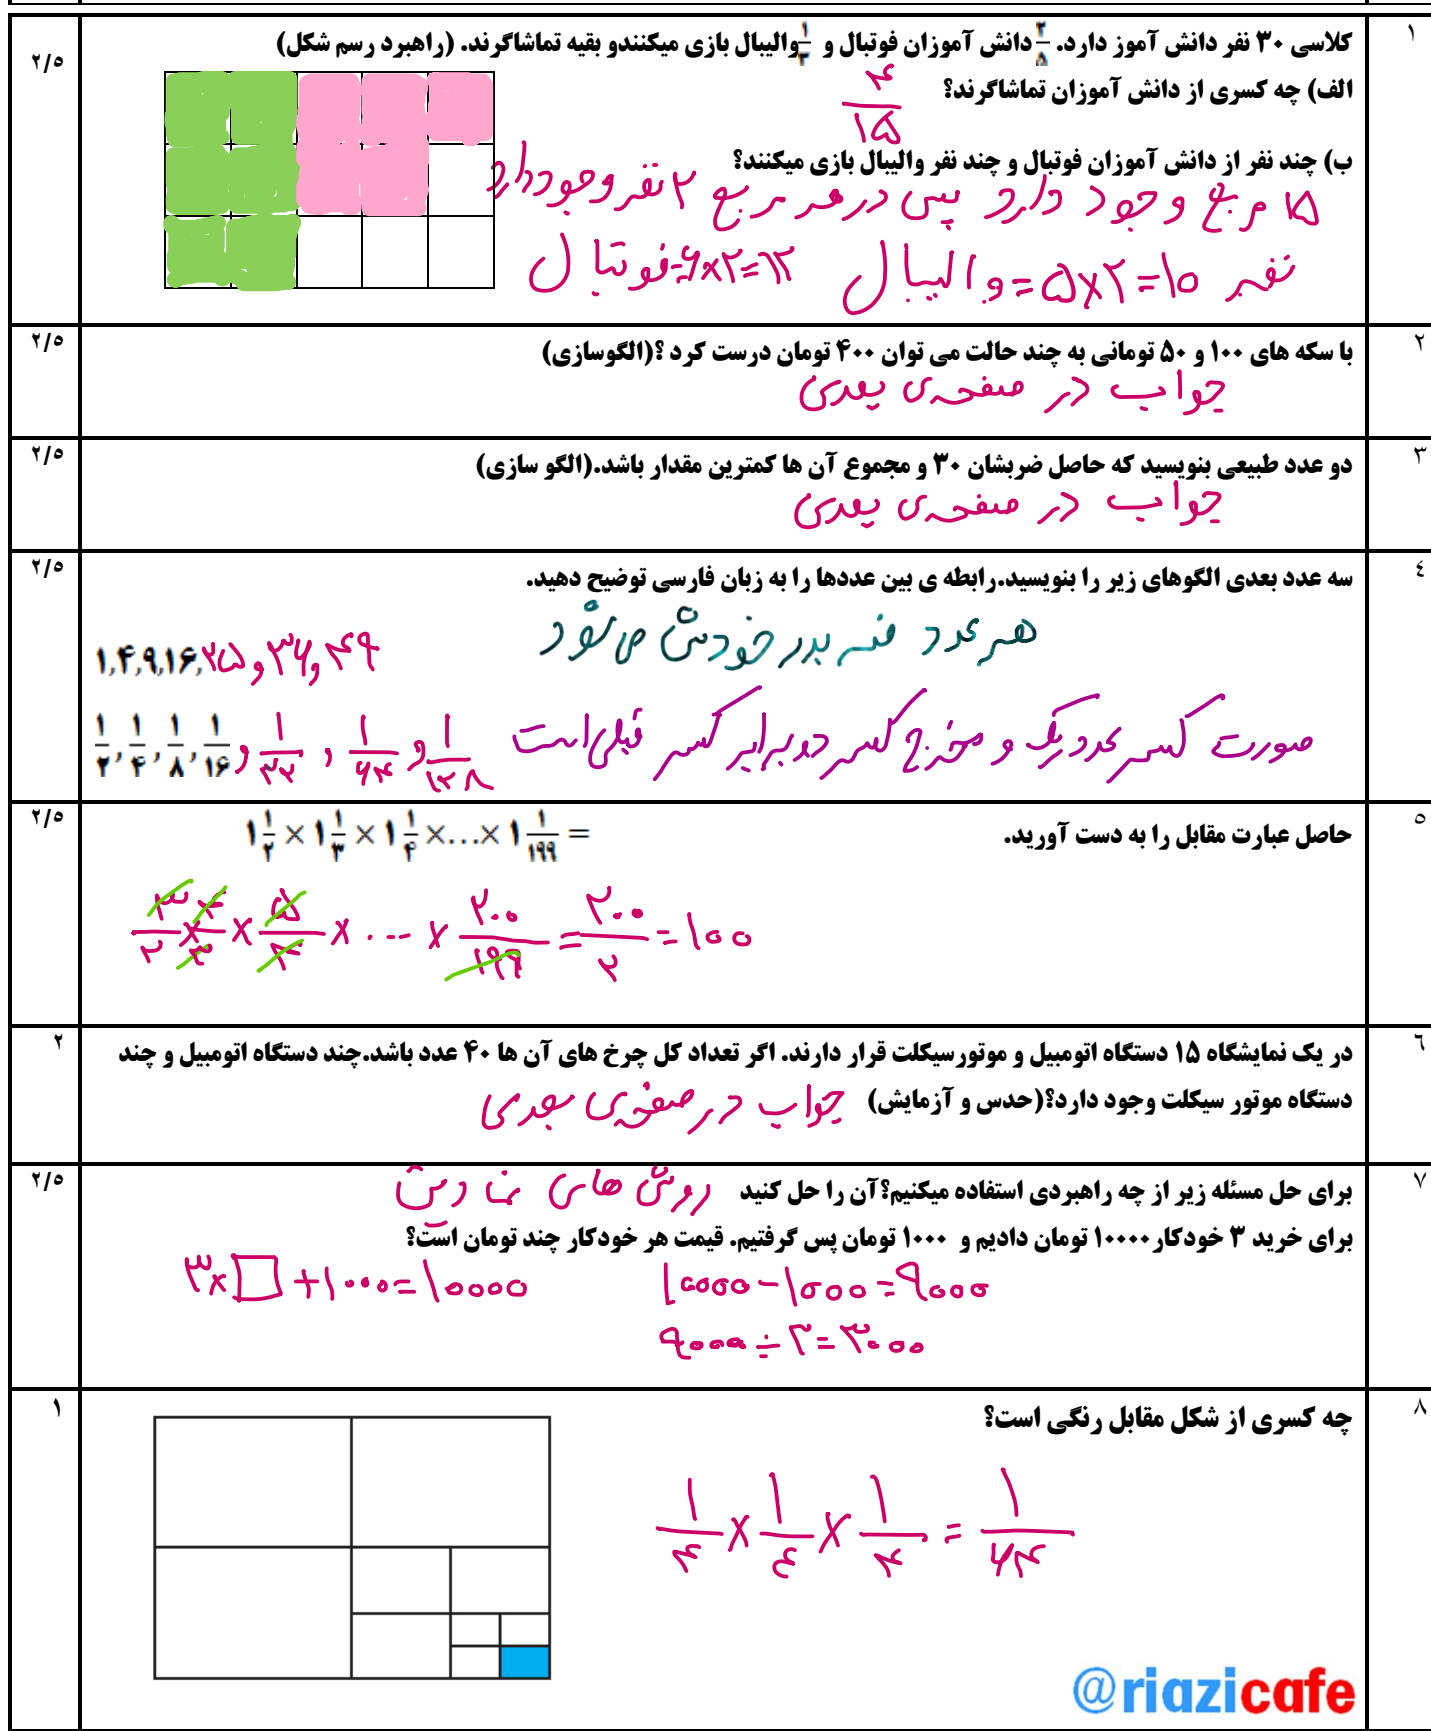 ۱
کلاسی ۳۰ نفر دانش آموز دارد. ۲/۵ دانش آموزان فوتبال و ۱/۳ والیبال بازی میکنندو بقیه تماشاگرند. (راهبرد رسم شکل)
۲/۵
الف) چه کسری از دانش آموزان تماشاگرند؟
۴/۱۵
ب) چند نفر از دانش آموزان فوتبال و چند نفر والیبال بازی میکنند؟
۱۵ مربع وجود دارد پس در هر مربع ۲ نفر وجود دارد
نفر ۱۰=۵×۲=والیبال ۶×۲=۱۲=فوتبال
۲
با سکه های ۱۰۰ و ۵۰ تومانی به چند حالت می توان ۴۰۰ تومان درست کرد ؟(الگوسازی)
۲/۵
جواب در صفحه‌ی بعدی
۳
دو عدد طبیعی بنویسید که حاصل ضربشان ۳۰ و مجموع آن ها کمترین مقدار باشد.(الگو سازی)
۲/۵
جواب در صفحه‌ی بعدی
٤
سه عدد بعدی الگوهای زیر را بنویسید.رابطه ی بین عددها را به زبان فارسی توضیح دهید.
۲/۵
هر عدد ضربدر خودش می‌شود
۱,۴,۹,۱۶,۲۵و۳۶و۴۹
صورت کسر عدد یک و مخرج کسر دو برابر کسر قبلی است
۱/۲, ۱/۴, ۱/۸, ۱/۱۶, ۱/۳۲, ۱/۶۴و ۱/۱۲۸
٥
حاصل عبارت مقابل را به دست آورید.
۱ ۱/۲ × ۱ ۱/۳ × ۱ ۱/۴ ×...× ۱ ۱/۱۹۹ =
۲/۵
۳/۲ × ۴/۳ × ۵/۴ × ... × ۲۰۰/۱۹۹ = ۲۰۰/۲ = ۱۰۰
٦
در یک نمایشگاه ۱۵ دستگاه اتومبیل و موتورسیکلت قرار دارند. اگر تعداد کل چرخ های آن ها ۴۰ عدد باشد.چند دستگاه اتومبیل و چند
۲
دستگاه موتور سیکلت وجود دارد؟(حدس و آزمایش) جواب در صفحه‌ی بعدی
۷
برای حل مسئله زیر از چه راهبردی استفاده میکنیم؟آن را حل کنید روش های نمادین
۲/۵
برای خرید ۳ خودکار ۱۰۰۰۰ تومان دادیم و ۱۰۰۰ تومان پس گرفتیم. قیمت هر خودکار چند تومان است؟
۳×□+۱۰۰۰=۱۰۰۰۰
۱۰۰۰۰-۱۰۰۰=۹۰۰۰
۹۰۰۰÷۳=۳۰۰۰
۸
چه کسری از شکل مقابل رنگی است؟
۱
۱/۴ × ۱/۴ × ۱/۴ = ۱/۶۴
@riazicafe